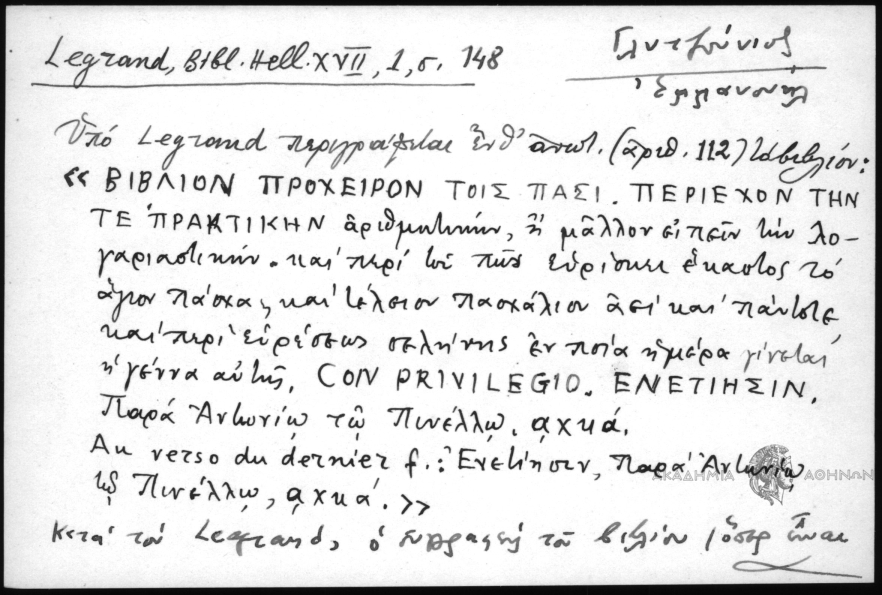 Legrand, Bibl. Hell. XVII, 1, σ. 148
Γλυτζούνιος
Ἐμμανουὴλ
Ὑπό Legrand περιγράφεται ἐνθ' ἀνωτ. (ἀριθ. 112) τό βιβλίον:
« ΒΙΒΛΙΟΝ ΠΡΟΧΕΙΡΟΝ ΤΟΙΣ ΠΑΣΙ. ΠΕΡΙΕΧΟΝ ΤΗΝ
ΤΕ ΠΡΑΚΤΙΚΗΝ ἀριθμητικήν, ἢ μᾶλλον εἰπεῖν τὴν λο-
γαριαστικήν. καί περί τοῦ πῶς εὑρίσκει ἕκαστος τό
ἅγιον πάσχα, καί τέλειον πασχάλιον ἀεί καί πάντοτε,
καί περί εὑρέσεως σελήνης ἐν ποία ἡμέρα γίνεται
ἡ γέννα αὐτῆς, CON PRIVILEGIO. ΕΝΕΤΙΗΣΙΝ.
Παρά Ἀντωνίῳ τῷ Πινέλλῳ. ᾳχκά.
Au verso du dernier f.: Ἐνετίησιν, παρά Ἀντωνίῳ
τῷ Πινέλλῳ, ᾳχκά. »
ΑΚΑΔΗΜΙΑ ΑΘΗΝΩΝ
Κατά τόν Legrand, ὁ συγγραφεύς τοῦ βιβλίου, ὅσπερ εἶναι